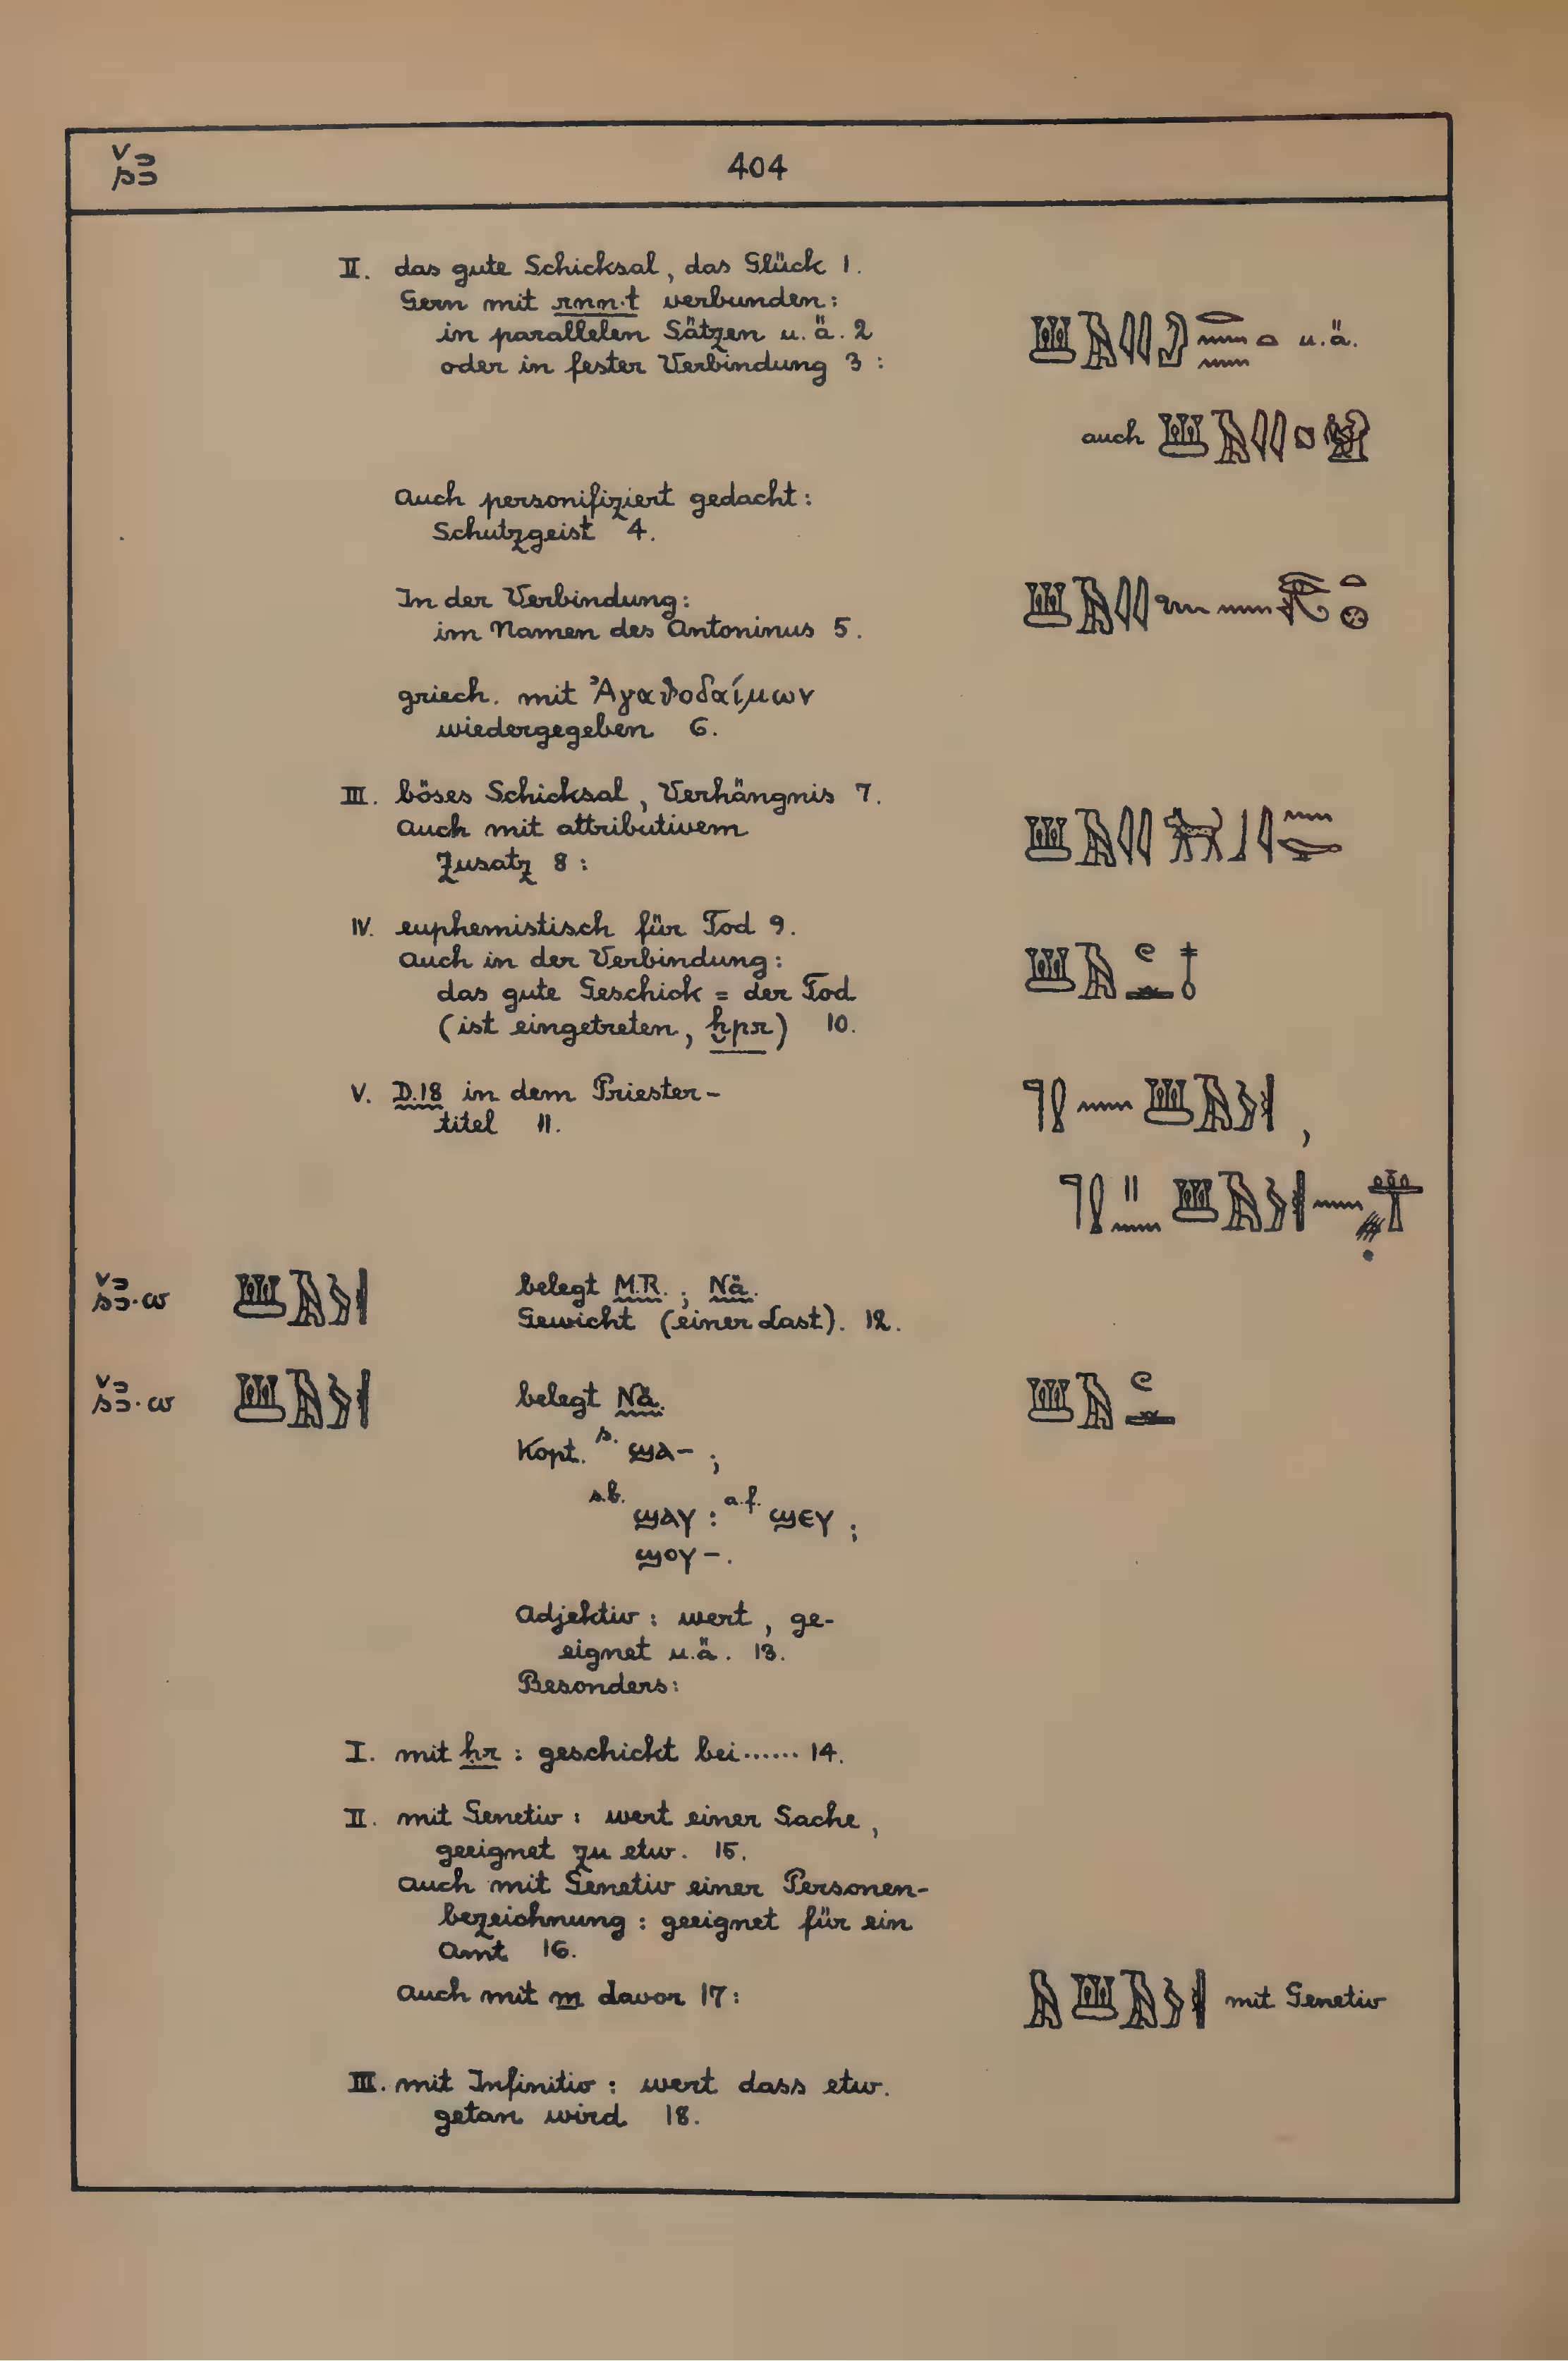 šꜣ
404
II. das gute Schicksal, das Glück 1.
Gern mit rnn·t verbunden:
in parallelen Sätzen u.ä. 2
oder in fester Verbindung 3:
u.ä.
auch
Auch personifiziert gedacht:
Schutzgeist 4.
In der Verbindung:
im Namen des Antoninus 5.
griech. mit Ἀγαθοδαίμων
wiedergegeben 6.
III. böses Schicksal, Verhängnis 7.
Auch mit attributivem
Zusatz 8:
IV. euphemistisch für Tod 9.
Auch in der Verbindung:
das gute Geschick = der Tod
(ist eingetreten, ḫpr) 10.
V. D.18 in dem Priester-
titel 11.
šꜣ·w
belegt M.R.; Nä.
Gewicht (einer Last). 12.
šꜣ·w
belegt Nä.
Kopt. s. ϣⲁ-;
s.b. ϣⲁⲩ : a.f. ϣⲉⲩ;
ϣⲟⲩ-.
Adjektiv: wert, ge-
eignet u.ä. 13.
Besonders:
I. mit ḥr: geschickt bei...... 14.
II. mit Genetiv: wert einer Sache,
geeignet zu etw. 15.
Auch mit Genetiv einer Personen-
bezeichnung: geeignet für ein
Amt 16.
Auch mit m davor 17:
mit Genetiv
III. mit Infinitiv: wert dass etw.
getan wird 18.